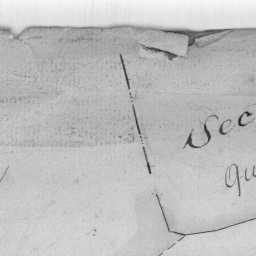 Sec
qu